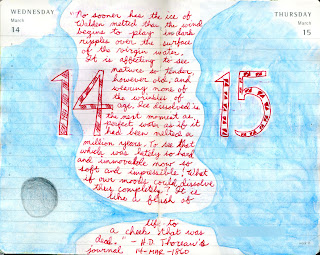 WEDNESDAY
March
14
THURSDAY
March
15
"No sooner has the ice of
Walden melted than the wind
begins to play in dark
ripples over the surface
of the virgin water.
It is affecting to see
nature so tender,
however old, and
wearing none of
the wrinkles of
age. Ice dissolved is
the next moment as
perfect water as if it
had been melted a
million years. To see that
which was lately so hard
and immovable now so
soft and impressible! What
if our moods could dissolve
thus completely? It is
like a flush of
life to
a cheek that was
dead." - H.D. Thoreau's
journal 14-MAR-1860
14
15